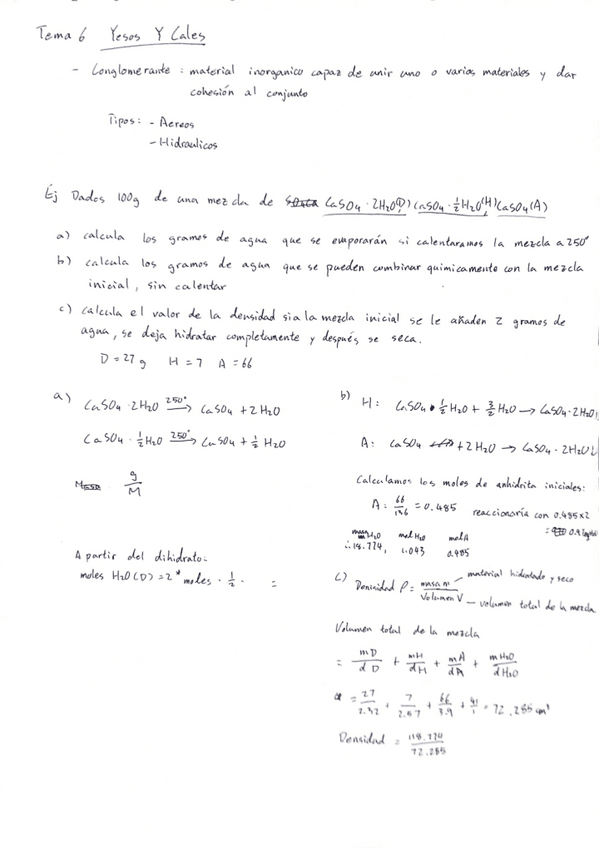 Tema 6 Yesos Y Cales
- Conglomerante : material inorganico capaz de unir uno o varios materiales y dar
cohesión al conjunto
Tipos: - Aereos
- Hidraulicos
Ej Dados 100g de una mezcla de CaSO4 · 2H2O(D) CaSO4 · 1/2 H2O(H) CaSO4(A)
a) calcula los gramos de agua que se evaporarán si calentaramos la mezcla a 250°
b) calcula los gramos de agua que se pueden combinar quimicamente con la mezcla
inicial, sin calentar
c) calcula el valor de la densidad si a la mezcla inicial se le añaden 2 gramos de
agua, se deja hidratar completamente y después se seca.
D = 27g H = 7 A = 66
a) CaSO4 · 2H2O 250° → CaSO4 + 2H2O
CaSO4 · 1/2 H2O 250° → CaSO4 + 1/2 H2O
g/M
A partir del dihidrato:
moles H2O(D) = 2 * moles · 1/2 · =
b) H: CaSO4 · 1/2 H2O + 3/2 H2O → CaSO4 · 2H2O
A: CaSO4 + 2H2O → CaSO4 · 2H2O
Calculamos los moles de anhidrita iniciales:
A: 66/136 = 0.485 reaccionaría con 0.485x2
H2O mol H2O mol A
∴ 18.774, 1.043 0.485
c) Densidad ρ = masa m / Volumen V
material hidratado y seco
volumen total de la mezcla
Volumen total de la mezcla
= mD/dD + mH/dH + mA/dA + mH2O/dH2O
= 27/2.32 + 7/2.57 + 66/3.9 + 41/1 = 72.285 cm³
Densidad = 118.770/72.285